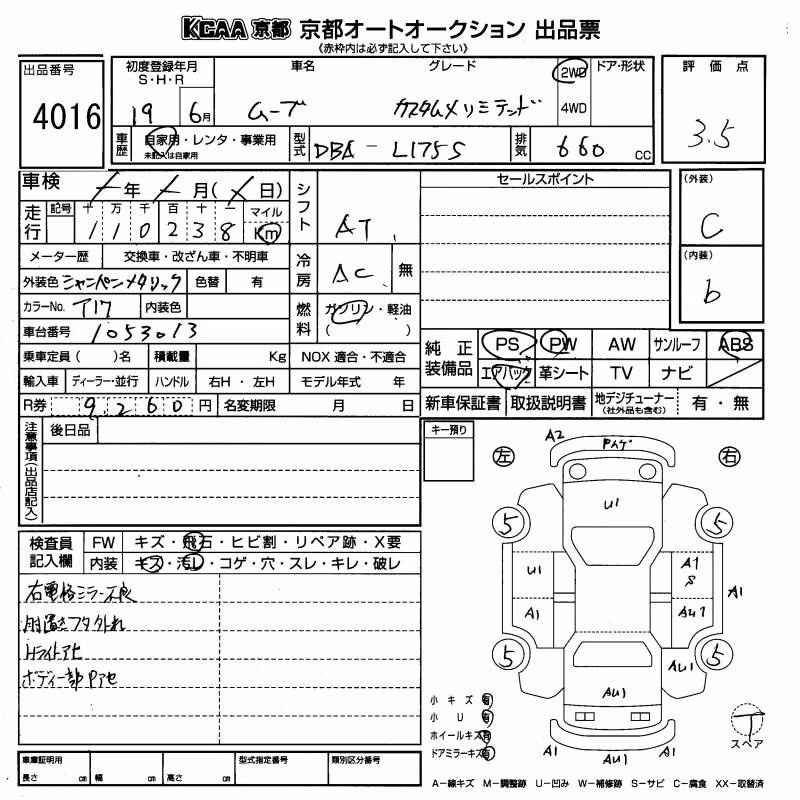 KCAA 京都 京都オートオークション 出品票
《赤枠内は必ず記入して下さい》
出品番号
4016
初度登録年月
S・H・R
19 6月
車名
ムーブ
グレード
カスタムメリミテッド
2WD
4WD
ドア・形状
評価点
3.5
車歴
自家用・レンタ・事業用
未記入は自家用
型式
DBA-L175S
排気
660 cc
車検
年 月( 日)
走行
記号 十 万 千 百 十 一 マイル
1 1 0 2 3 8 Km
シフト
AT
セールスポイント
(外装)
C
(内装)
b
メーター歴 交換車・改ざん車・不明車
冷房
AC 無
外装色 シャンペンメタリック 色替 有
カラーNo. T17 内装色
燃料
ガソリン・軽油
( )
車台番号 1053013
乗車定員( )名 積載量 Kg NOX 適合・不適合
輸入車 ディーラー・並行 ハンドル 右H・左H モデル年式 年
R券 9260円 名変期限 月 日
純正装備品
PS PW AW サンルーフ ABS
エアバック 革シート TV ナビ
新車保証書 取扱説明書 地デジチューナー(社外品も含む) 有・無
注意事項(出品店記入)
後日品
キー預り
検査員記入欄
FW キズ・飛石・ヒビ割・リペア跡・X要
内装 キズ・汚レ・コゲ・穴・スレ・キレ・破レ
右電格ミラー不良
肘置きフタ外れ
Hライトアセ
ボディ一部Pアセ
左 右
A2 Pハゲ
U1
5 5
U1 A1 S
A1
A1 AU1
5 5
AU1
AU1
A1 AU1 A1
小キズ 有
小U 有
ホイールキズ 有
ドアミラーキズ 有
T
スペア
車庫証明用
長さ cm 幅 cm 高さ cm
型式指定番号
類別区分番号
A－線キズ M－調整跡 U－凹み W－補修跡 S－サビ C－腐食 XX－取替済